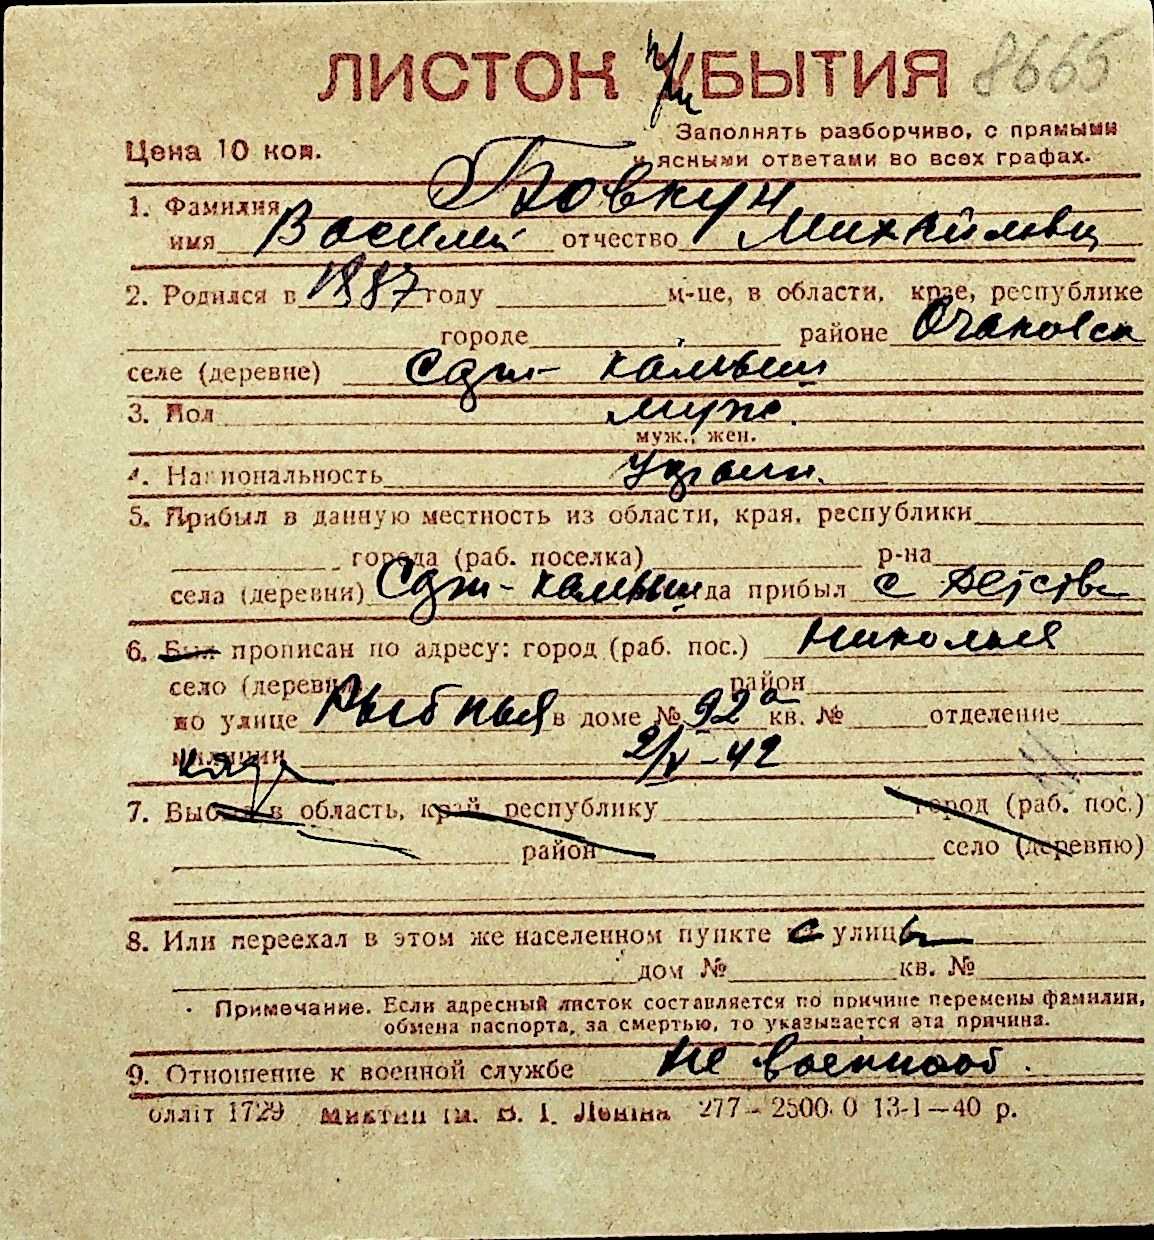 ЛИСТОК УБЫТИЯ 8665
Заполнять разборчиво, с прямыми
Цена 10 коп. и ясными ответами во всех графах.
1. Фамилия Бовкун
имя Василий отчество Михайлович
2. Родился в 1887 году м-це, в области, крае, республике
городе районе Очаковск
селе (деревне) камыши
3. Пол муж.
муж., жен.
4. Национальность Украин.
5. Прибыл в данную местность из области, края, республики
города (раб. поселка) р-на
села (деревни) да прибыл с детства
6. Был прописан по адресу: город (раб. пос.) Николаев
село (деревня) район
по улице Рыбная в доме № 92а кв. № отделение
милиции 2/V-42
7. Выбыл в область, край, республику город (раб. пос.)
район село (деревню)
8. Или переехал в этом же населенном пункте с улицы
дом № кв. №
Примечание. Если адресный листок составляется по причине перемены фамилии,
обмена паспорта, за смертью, то указывается эта причина.
9. Отношение к военной службе не военнооб.
Олліт 1729 ім. В. І. Леніна 277—2500.0 13-1—40 р.